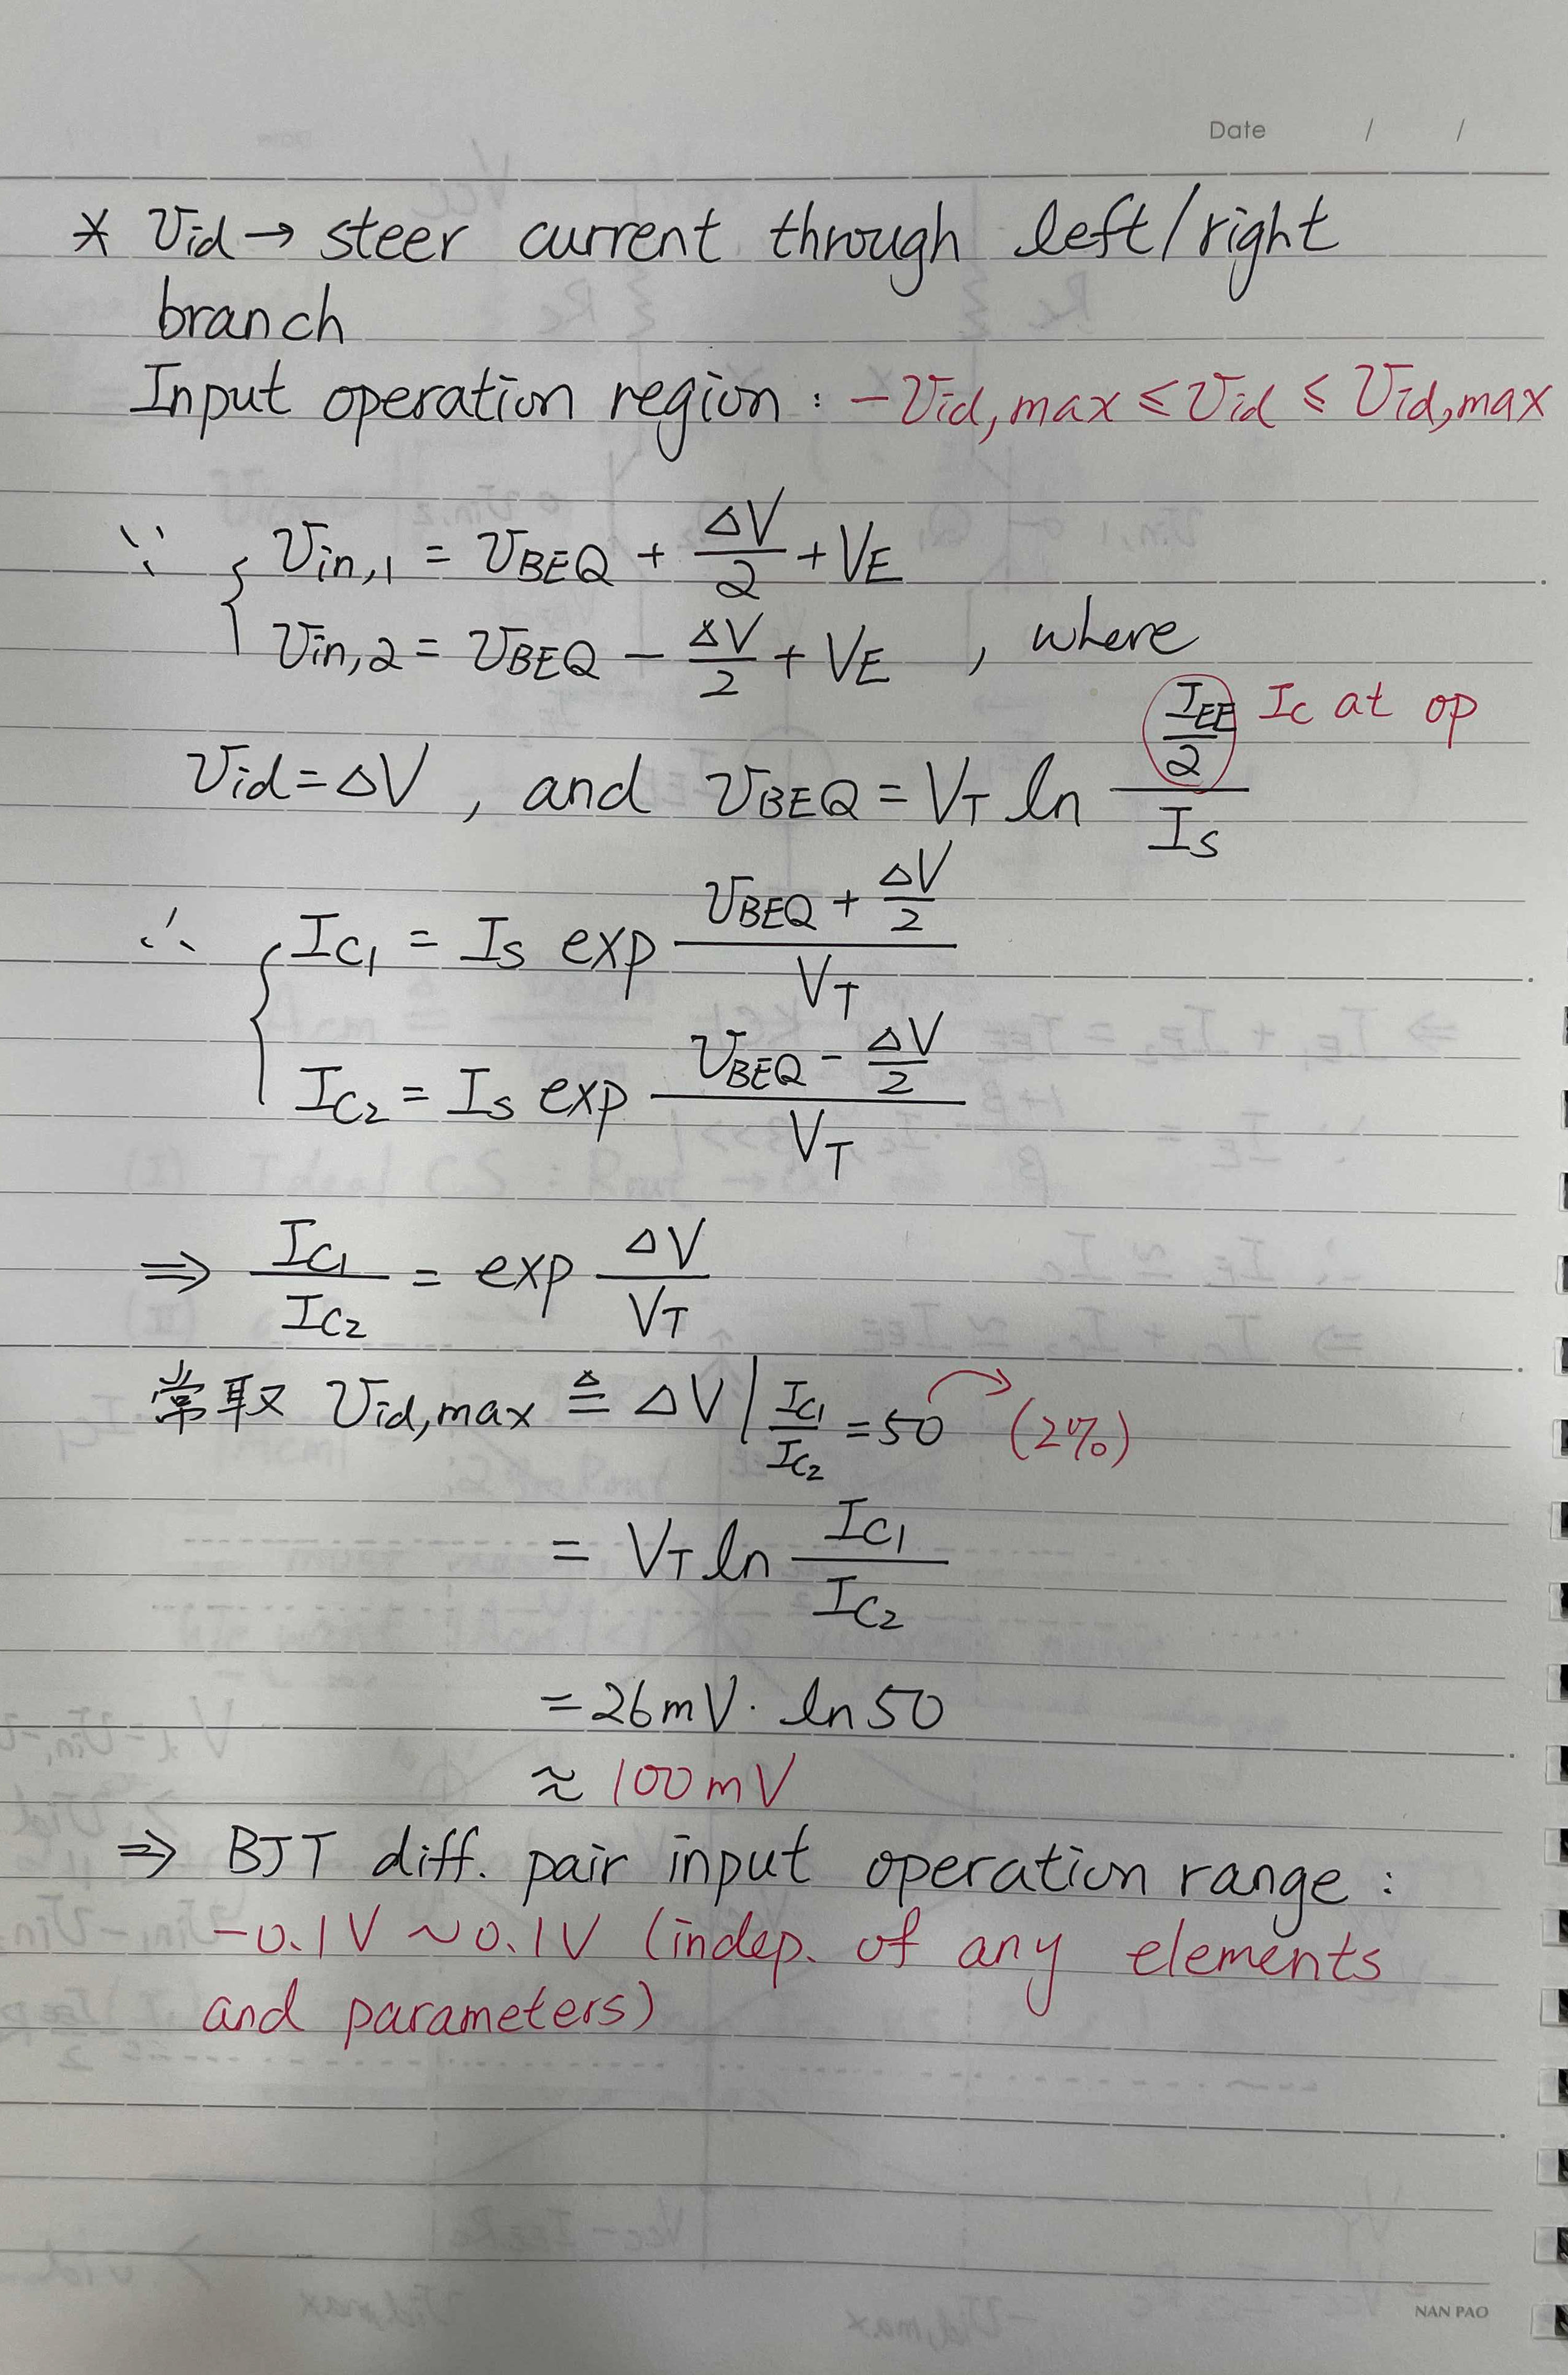 Date / /
* Vid → steer current through left/right
branch
Input operation region : -Vid,max ≤ Vid ≤ Vid,max
∵ { Vin,1 = VBEQ + ΔV/2 + VE
Vin,2 = VBEQ - ΔV/2 + VE , where
Vid = ΔV , and VBEQ = VT ln (IEE/2)/IS Ic at op
∴ { IC1 = IS exp (VBEQ + ΔV/2)/VT
IC2 = IS exp (VBEQ - ΔV/2)/VT
⇒ IC1/IC2 = exp ΔV/VT
常取 Vid,max ≜ ΔV | IC1/IC2 = 50 (2%)
= VT ln IC1/IC2
= 26mV · ln 50
≈ 100mV
⇒ BJT diff. pair input operation range :
-0.1V ~ 0.1V (indep. of any elements
and parameters)
NAN PAO